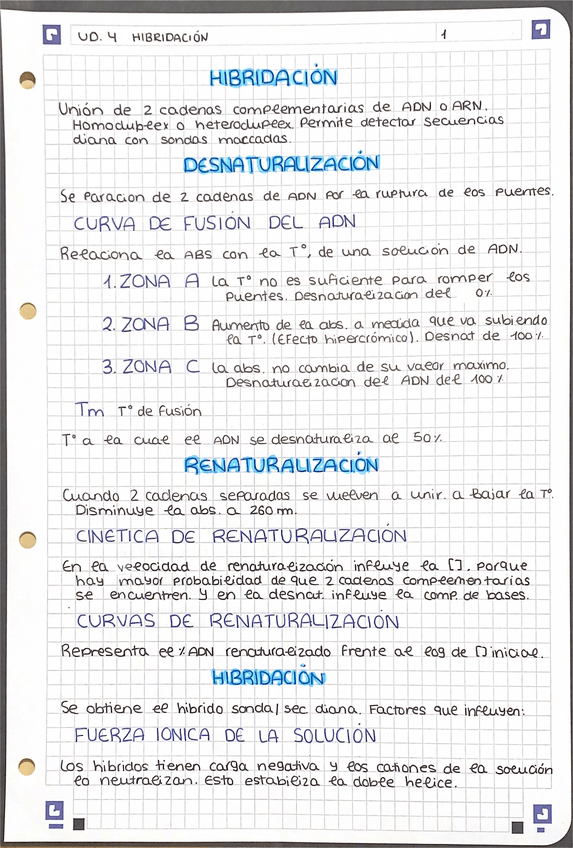 UD. 4 HIBRIDACIÓN 1
HIBRIDACIÓN
Unión de 2 cadenas complementarias de ADN o ARN.
Homoduplex o heteroduplex. Permite detectar secuencias
diana con sondas marcadas.
DESNATURALIZACIÓN
Se paracion de 2 cadenas de ADN por la ruptura de los puentes.
CURVA DE FUSIÓN DEL ADN
Relaciona la ABS con la Tº, de una solución de ADN.
1. ZONA A La Tº no es suficiente para romper los
puentes. Desnaturalizacion del 0%
2. ZONA B Aumento de la abs. a medida que va subiendo
la Tº. (Efecto hipercrómico). Desnat de 100%.
3. ZONA C La abs. no cambia de su valor maximo.
Desnaturalizacion del ADN del 100%
Tm Tº de fusión
Tº a la cual el ADN se desnaturaliza al 50%
RENATURALIZACIÓN
Cuando 2 cadenas separadas se vuelven a unir. a bajar la Tº.
Disminuye la abs. a 260 nm.
CINETICA DE RENATURALIZACIÓN
En la velocidad de renaturalización influye la []. porque
hay mayor probabilidad de que 2 cadenas complementarias
se encuentren. Y en la desnat. influye la comp. de bases.
CURVAS DE RENATURALIZACIÓN
Representa el % ADN renaturalizado frente al log de [] inicial.
HIBRIDACIÓN
Se obtiene el hibrido sonda/sec diana. Factores que influyen:
FUERZA IONICA DE LA SOLUCIÓN
Los hibridos tienen carga negativa y los cationes de la solución
lo neutralizan. Esto estabiliza la doble helice.